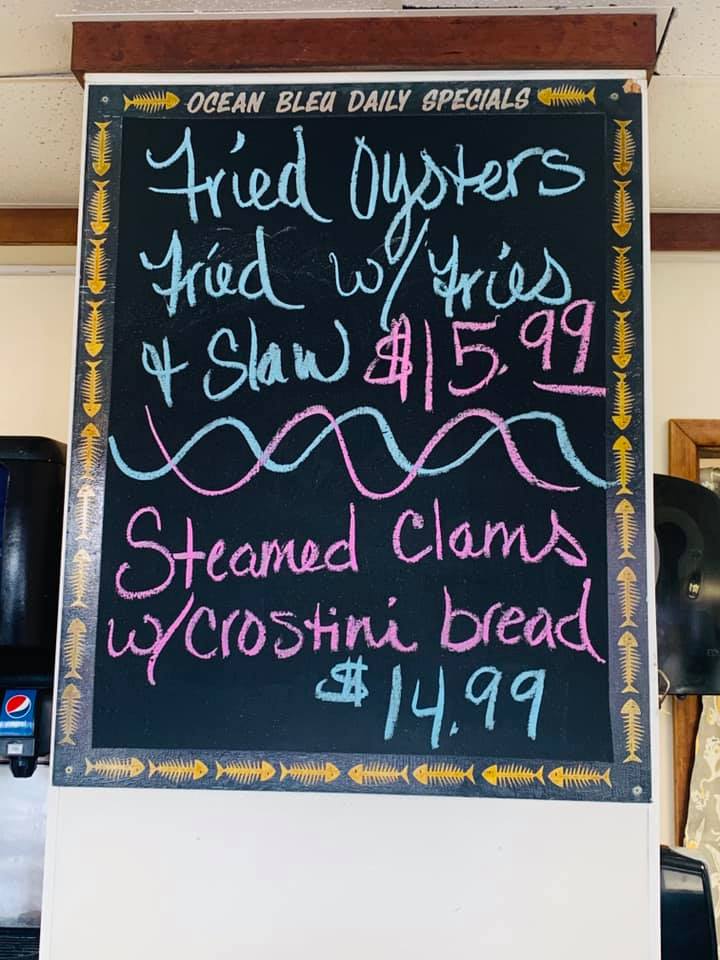 OCEAN BLEU DAILY SPECIALS
Fried Oysters
Fried w/ Fries
& Slaw $15.99
Steamed Clams
w/ Crostini bread
$14.99